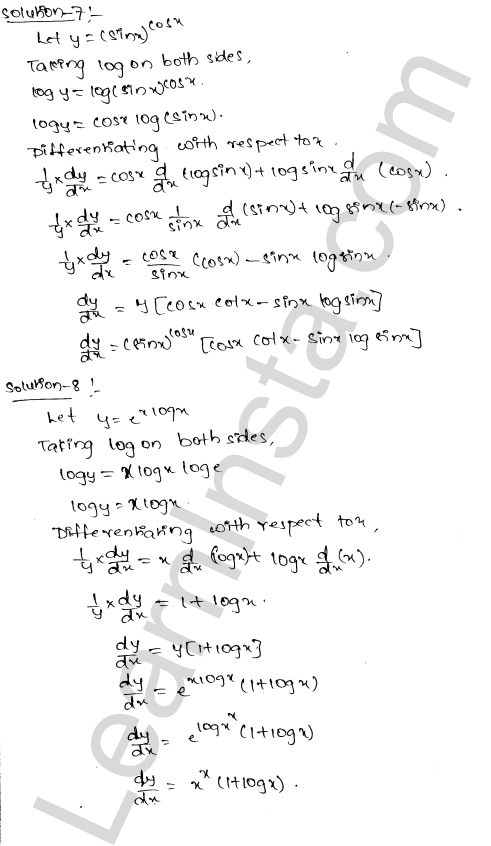 Solution-7:-
Let y = (sinx)^cosx
Taking log on both sides,
log y = log(sinx)^cosx.
logy = cosx log(sinx).
Differentiating with respect to x.
1/y × dy/dx = cosx d/dx (logsinx) + logsinx d/dx (cosx).
1/y × dy/dx = cosx 1/sinx d/dx (sinx) + logsinx(-sinx).
1/y × dy/dx = cosx/sinx (cosx) - sinx logsinx.
dy/dx = y [cosx cotx - sinx logsinx]
dy/dx = (sinx)^cosx [cosx cotx - sinx log sinx]
Solution-8:-
Let y = e^xlogx
Taking log on both sides,
logy = xlogx loge
logy = xlogx.
Differentiating with respect to x,
1/y × dy/dx = x d/dx (logx) + logx d/dx (x).
1/y × dy/dx = 1 + logx.
dy/dx = y[1+logx]
dy/dx = e^xlogx (1+logx)
dy/dx = e^logx^x (1+logx)
dy/dx = x^x (1+logx).
LearnInsta.com